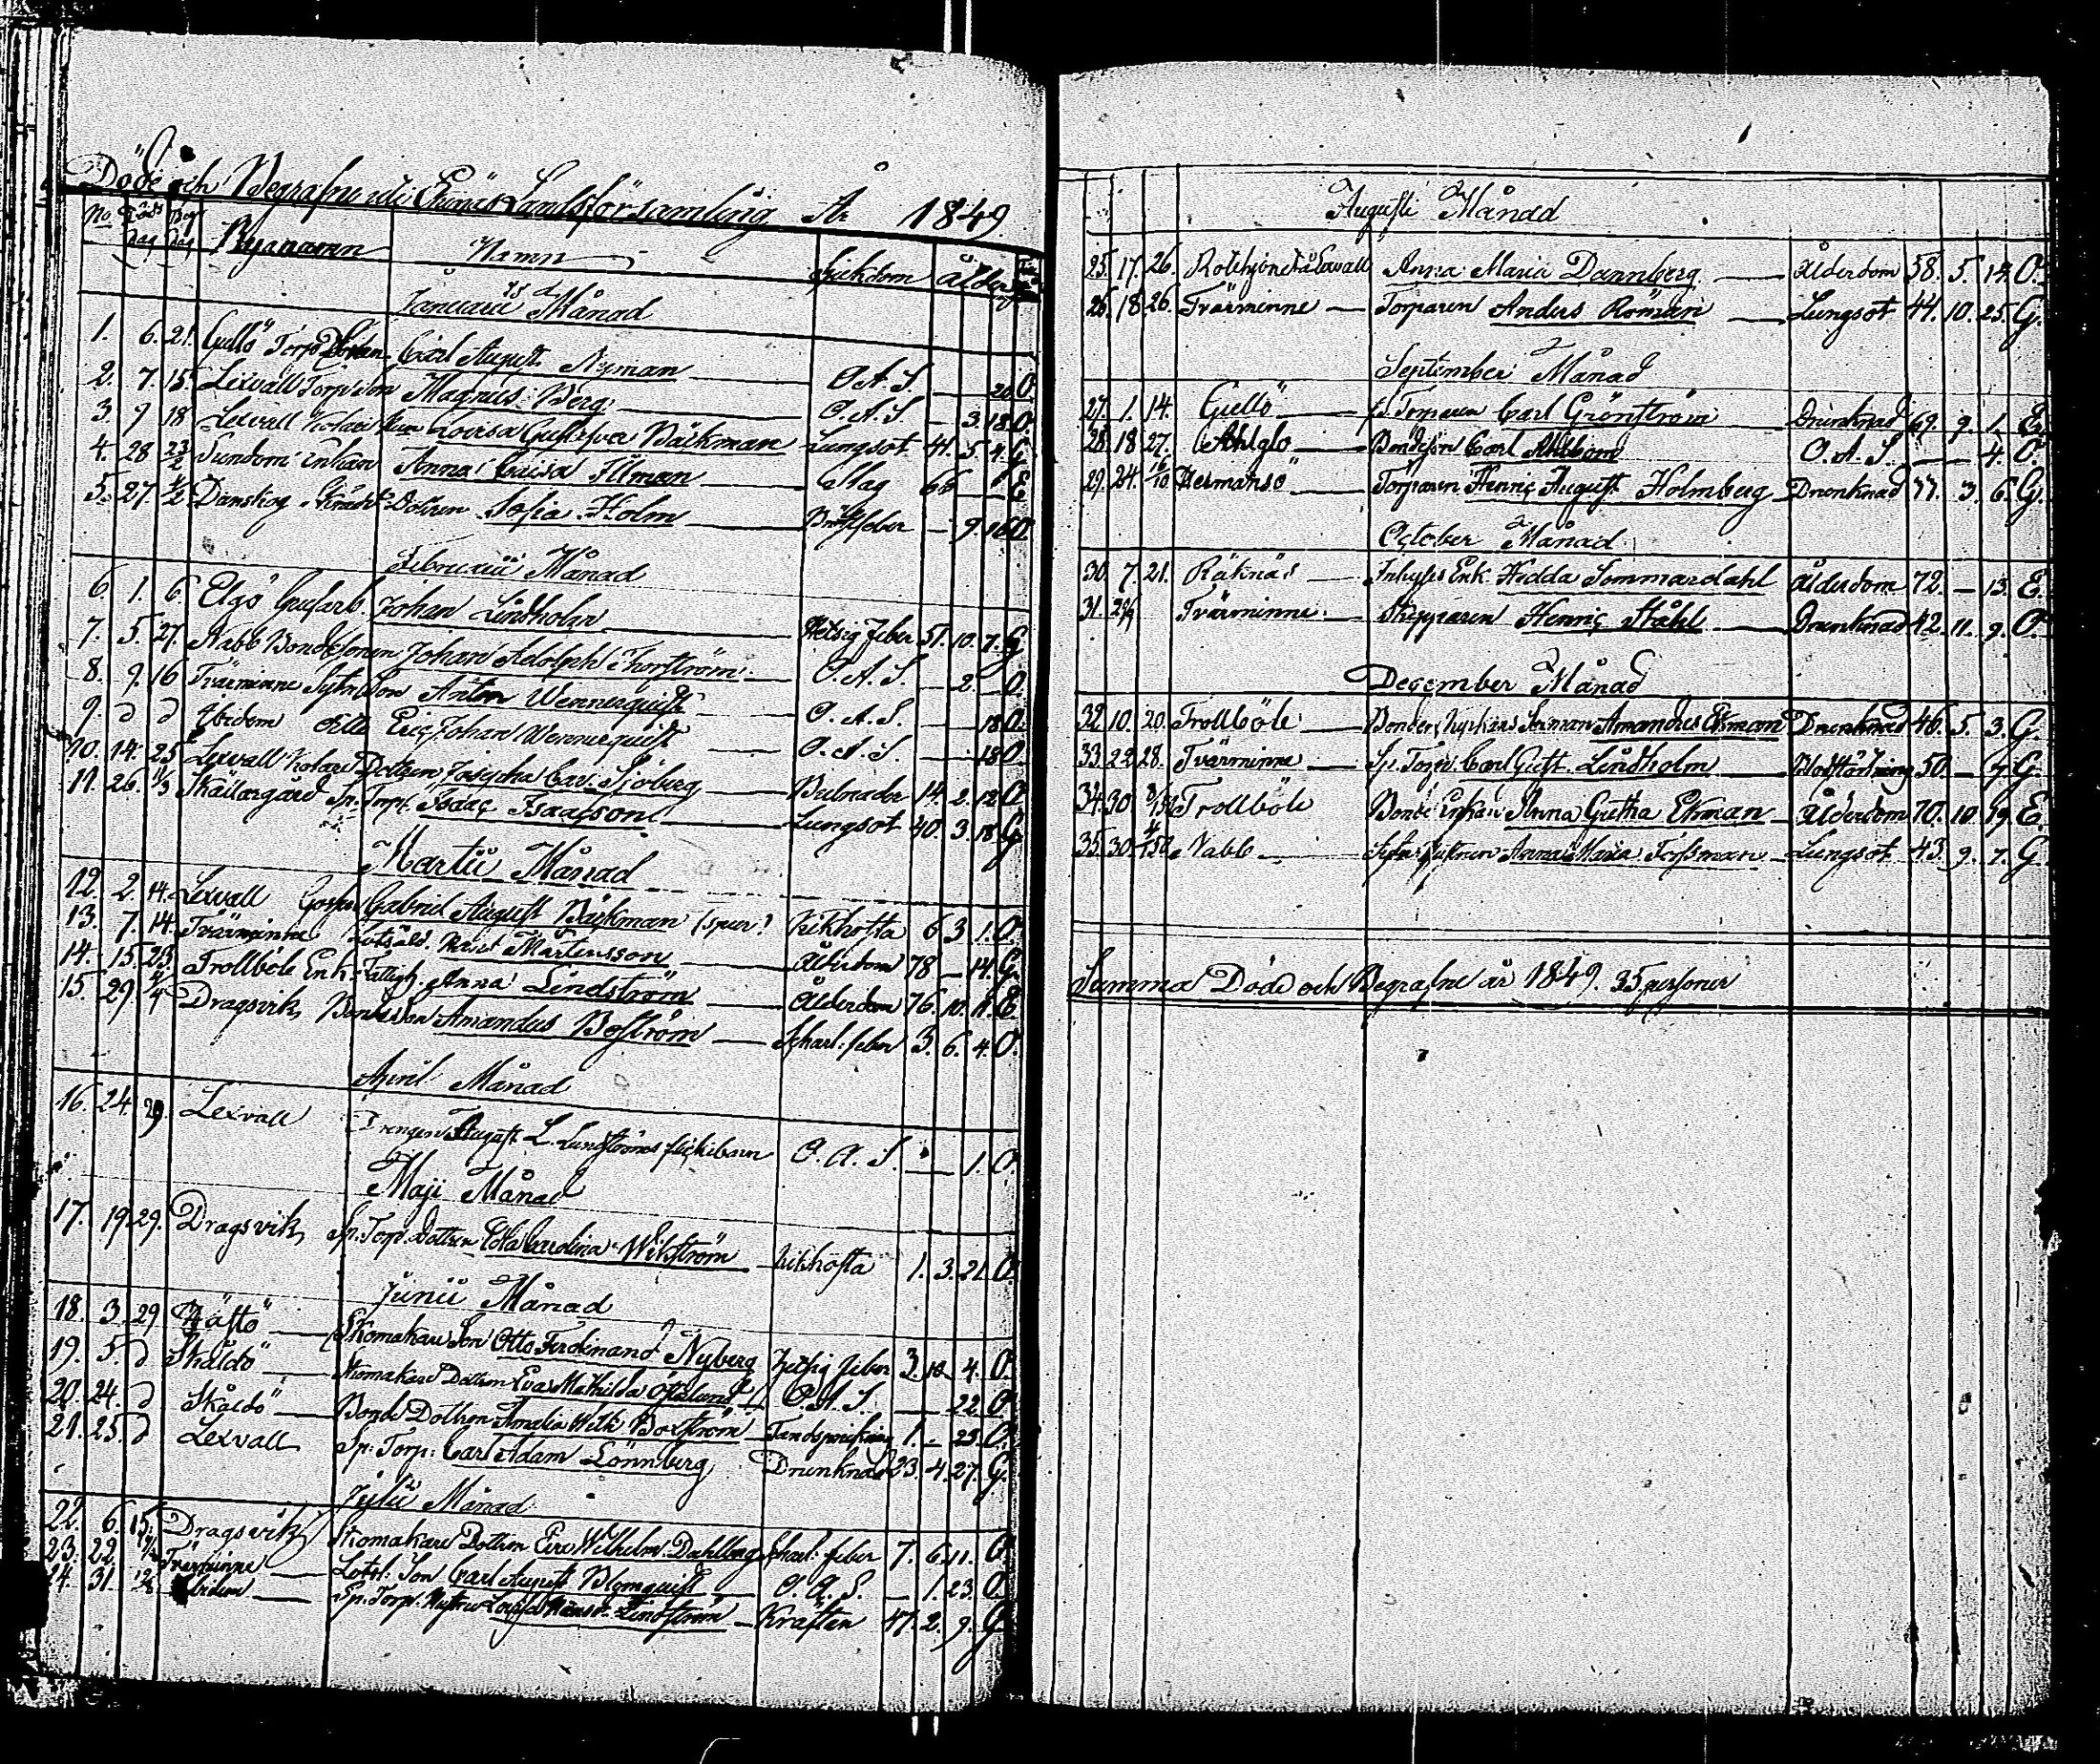 Döde och Begrafne uti Ekenäs Landsförsamling År 1849
No Döds dag Beg dag Byanamn Namn Sjukdom Ålder
Januarii Månad
1. 6. 21. Gullö Torp Carl August Nyman O.A.S. — 20. O.
2. 7. 15. Lexvall Torp: Son Magnus Berg O.A.S. — 3. 18. O.
3. 9 18 Lexvall Lovisa Gustafva Bäckman Lungsot 41. 5. 4. G
4. 28 23/2 Sundom Enkan Anna Caisa Illman Slag 66 — 1 E
5. 27 Danskog Dottren Sofia Holm feber — 9. 16. O.
Februarii Månad
6. 1. 6. Elgö Johan Lindholm Hetsig feber 51. 10. 7. G
7. 5. 27. Nabb Bondesonen Johan Adolph Thorström O.A.S. — 2. — O.
8. 9. 16 Tvärminne Son Anton Wennerquist O.A.S. — 18 O.
9. d d Ibidem dille Eric Johan Wennerquist O.A.S. — 18 O.
10. 14. 25 Lexvall Dottren Josepha Car. Sjöberg 14. 2. 12. O
11. 26. 11/3 Skällargård Sp. Torp. Isaac Isaacson Lungsot 40. 3. 18. G
Martii Månad
12. 2. 14. Lexvall Gossen Gabriel August Bäckman (spur.) Kikhosta 6 3 1. O.
13. 7. 14. Tvärminne Mårtensson Ålderdom 78 — 14. G.
14. 15. 23 Trollböle Enk. Fattigh. Anna Lindström Ålderdom 76. 10. 11. E.
15. 29. Dragsvik Bondeson Amandus Boström Scharl: feber 3. 6. 4. O.
April Månad
16. 24. 29. Lexvall Drengen August L. Lundströms flickebarn O.A.S. — 1. O.
Maji Månad
17. 19. 29. Dragsvik Sp. Torp. Dottren Edla Carolina Wikström Kikhosta 1. 3. 21. O.
Junii Månad
18. 3. 29 Skomakare Son Otto Ferdinand Nyberg Hetsig feber 3. 10. 4. O.
19. 5. d Skåldö Skomakare Dottren Eva Mathilda Österlund O.A.S. — 22. O.
20. 24. d Skåldö Bonde Dottren Amalia Wilh. Boxström Tandsprickning 1. — 23. O.
21. 25. d Lexvall Sp. Torp: Carl Adam Lönnberg Drunknad 23. 4. 27. G.
Julii Månad
22. 6. 15. Dragsvik Skomakare Dottren Wilhelm. Dahlberg Scharl: feber 7. 6. 11. O.
23. 22. Tvärminne Lots. Son Carl August Blomquist O.A.S. — 1. 23. O.
24. 31. Ibidem Sp. Torp. Hustru Lovisa Lindström Kräftan 47. 2. 9. G.
Augusti Månad
25. 17. 26. Lexvall Anna Maria Dannberg Ålderdom 58. 5. 14. O.
26. 18. 26. Tvärminne Torparen Anders Röman Lungsot 44. 10. 25. G.
September Månad
27. 1. 14. Gullö Torparen Carl Grönström Drunknad 69. 9. 1. E.
28. 18. 27. Ahlglo Bondeson Carl Ahlbom O.A.S. — 4. O.
29. 24. Hermansö Torparen Henric August Holmberg Drunknad 37. 3. 6. G.
October Månad
30. 7. 21. Räknäs Inhyses Enk. Hedda Sommardahl Ålderdom 72. — 13. E.
31. Tvärminne Skepparen Henric Ståhl Drunknad 42. 11. 9. O.
December Månad
32. 10. 20. Trollböle Bonden Amandus Ekman Drunknad 46. 5. 3. G.
33. 22. 28. Tvärminne Sp. Torp. Carl Gust. Lindholm Blodstörtning 50. — 7. G.
34. 30. Trollböle Bonde Enkan Anna Gretha Ekman Ålderdom 70. 10. 19. E.
35. 30. Nabb Anna Maria Forssman Lungsot 43. 9. 7. G.
Summa Döde och Begrafne år 1849. 35 personer